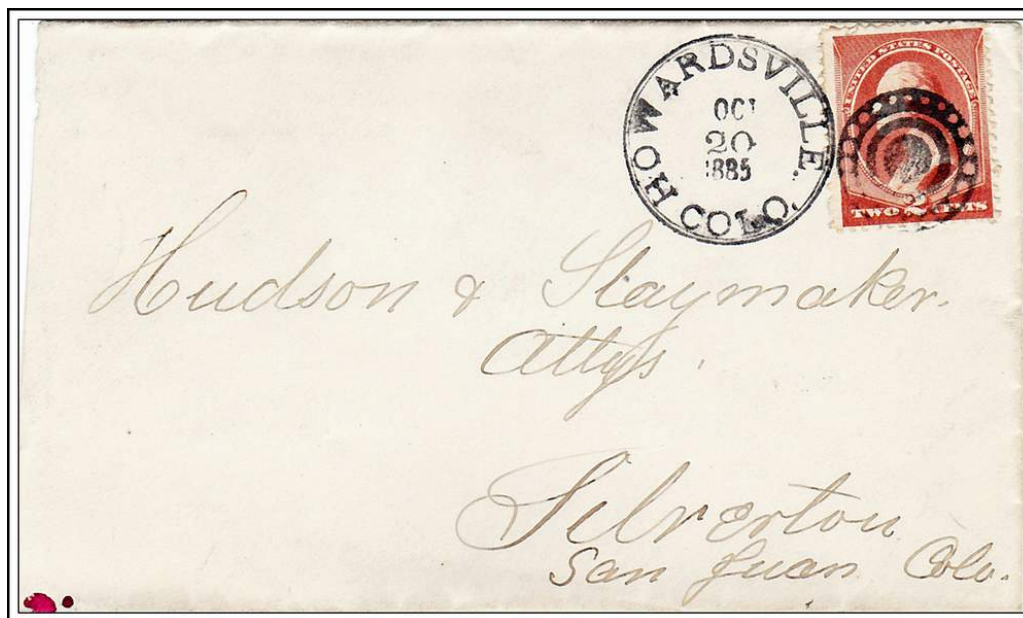 HOWARDSVILLE. COLO.
OCT
20
1885
UNITED STATES POSTAGE
TWO 2 CENTS
Hudson & Slaymaker.
Attys.
Silverton
San Juan Colo.